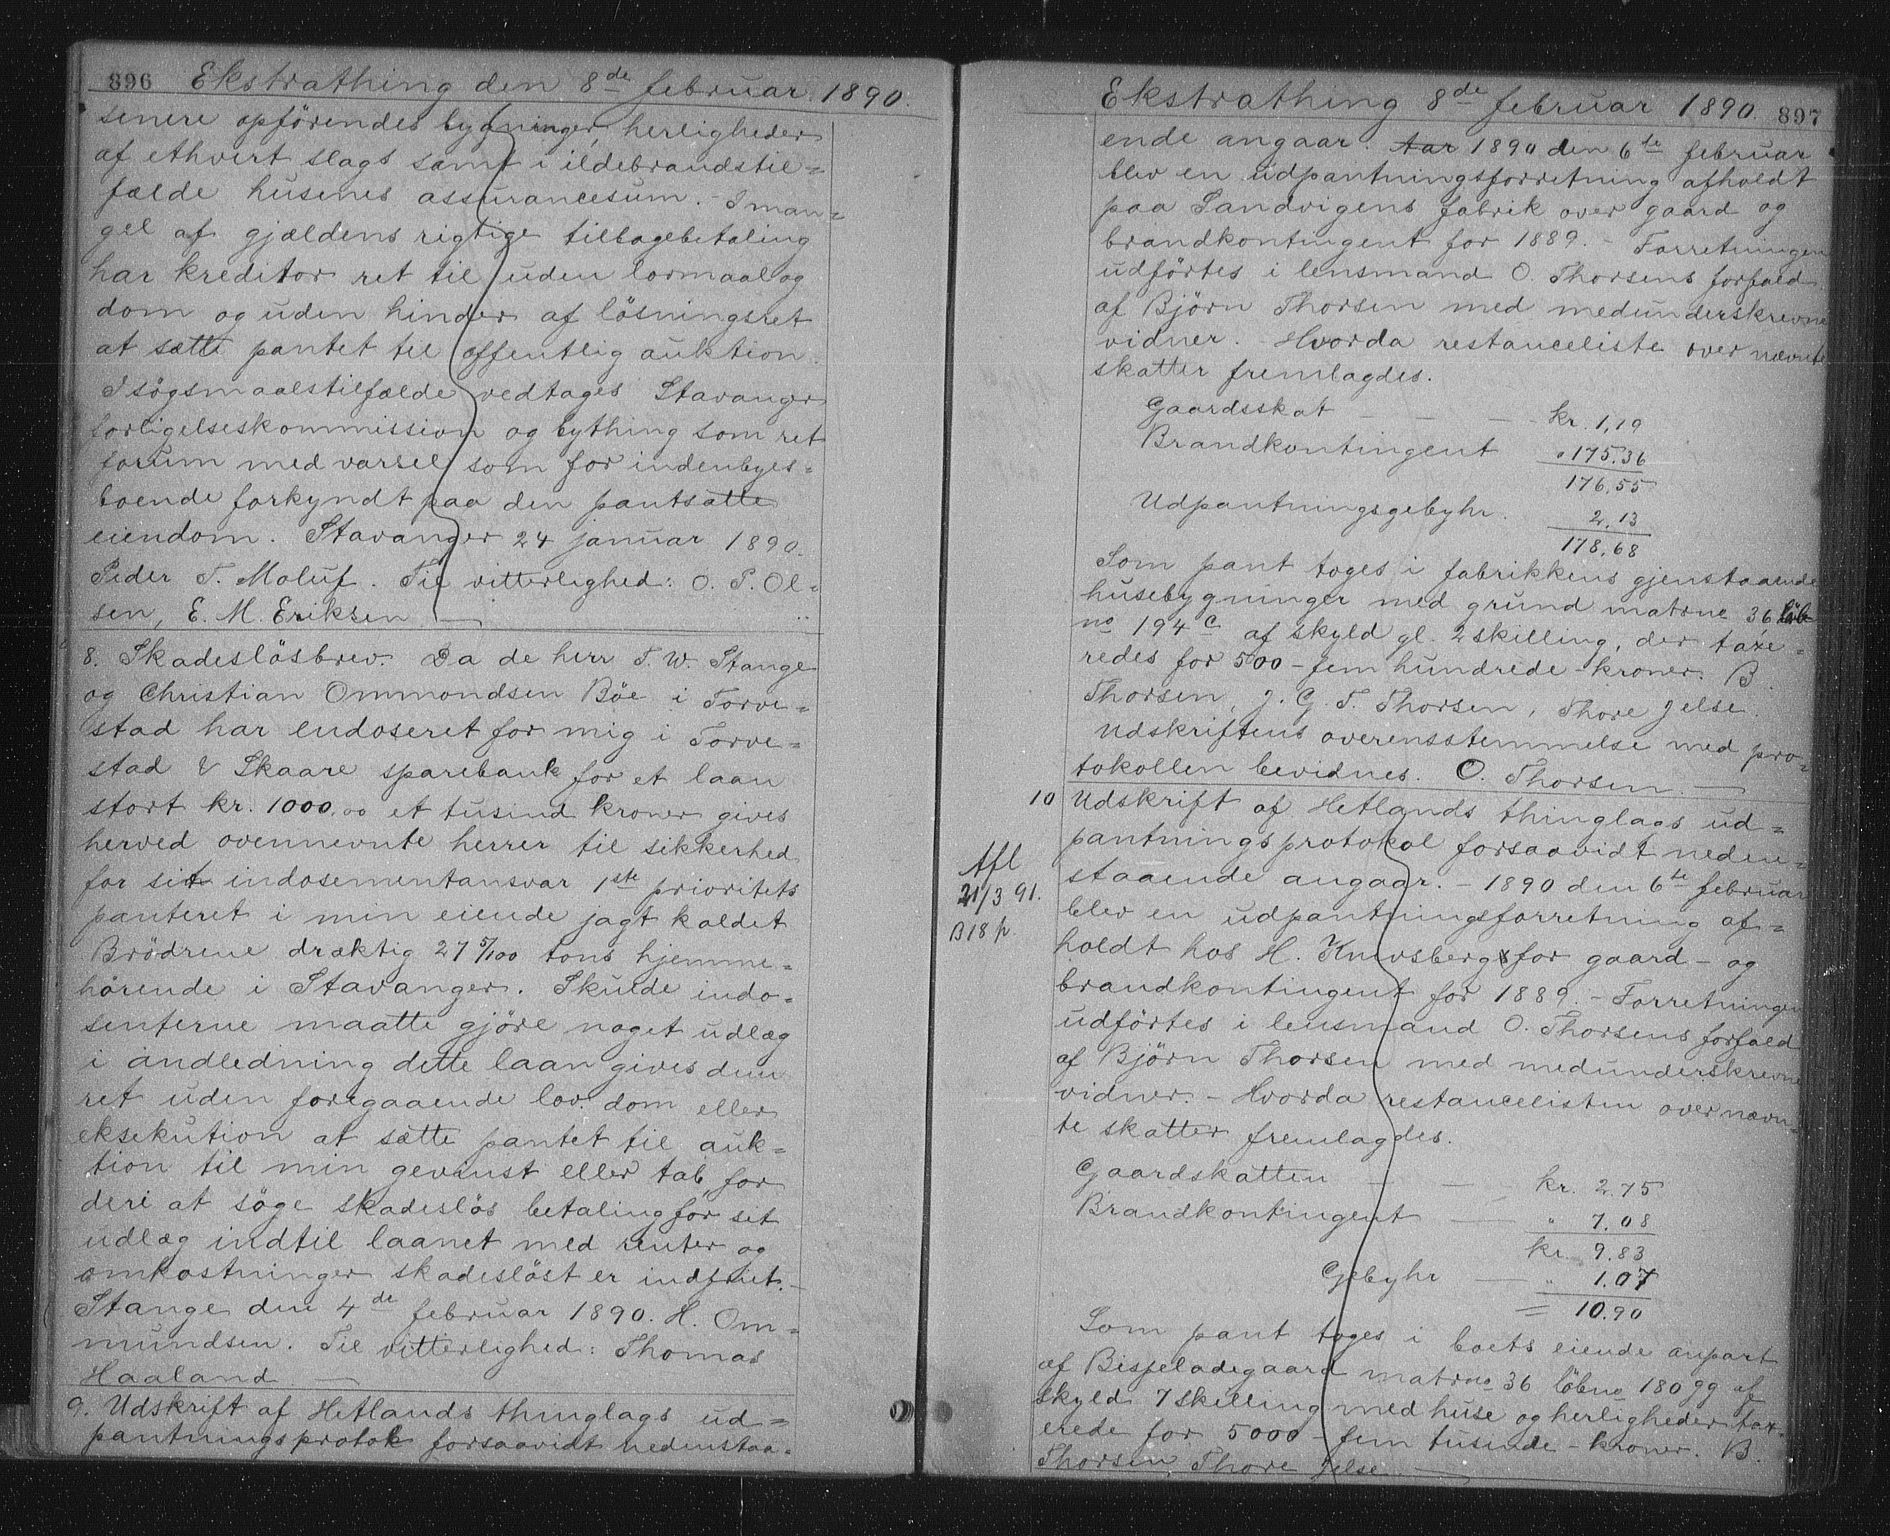 896 Ekstrathing den 8de februar 1890.
senere opförendes bygninger, herligheder
af ethvert slags samt i ildebrandstil=
fælde husenes assurancesum. - I man=
gel af gjældens rigtige tilbagebetaling
har kreditor ret til uden lovmaal og
dom og uden hinder af lösningsret
at sætte pantet til offentlig auktion.
I sögsmaalstilfælde vedtages Stavanger
forligelseskommission og bything som ret
forum med varsel som for indenbyes=
boende forkyndt paa den pantsatte
eiendom. Stavanger 24 januar 1890.
Peder T. Maluf. Til vitterlighed: O. P. Ol=
sen, E. M. Eriksen
8. Skadeslösbrev. Da de herr T. W. Stange
og Christian Ommondsen Böe i Torve=
stad har endoseret for mig i Torve=
stad & Skaare sparebank for et laan
stort kr. 1000,00 et tusind kroner gives
herved ovennevnte herrer til sikkerhed
for sit indosementansvar 1ste prioritets
panteret i min eiende jagt kaldet
Brödrene dræktig 27 5/100 tons hjemme=
hörende i Stavanger. Skulde indo=
senterne maatte gjöre noget udlæg
i andledning dette laan gives dem
ret uden foregaaende lov. dom eller
eksekution at sætte pantet til auk=
tion til min gevinst eller tab for
deri at söge skadeslös betaling for sit
udlæg indtil laanet med renter og
omkostninger skadeslöst er indfriet. -
Stange den 4de februar 1890. H. Om=
mundsen. Til vitterlighed: Thomas
Haaland
9. Udskrift af Hetlands thinglags ud=
pantningsprotok forsaavidt nedenstaa=
Ekstrathing 8de februar 1890. 897
ende angaar. Aar 1890 den 6te februar
blev en udpantningsforretning afholdt
paa Sandvigens fabrik over gaard og
brandkontingent for 1889. - Forretningen
udförtes i lensmand O. Thorsens forfald
af Björn Thorsen med medunderskrevne
vidner. - Hvorda restanceliste over nævnte
skatter fremlagdes.
Gaardsskat - - - kr. 1,19
Brandkontingent " 175.36
176,55
Udpantningsgebyhr. 2.13
178,68
Som pant toges i fabrikkens gjenstaaende
husebygninger med grund matrno 36 löb
no 194 c af skyld gl. 2 skilling, der taxe=
redes for 500 - fem hundrede - kroner. B.
Thorsen, J. G. T. Thorsen, Thore Jelse.
Udskriftens overensstemmelse med pro=
tokollen bevidnes. O. Thorsen.
10 Udskrift af Hetlands thinglags ud=
pantningsprotokol forsaavidt neden=
staaende angaar. - 1890 den 6te februar
Afl
21/3 91.
B18 p.
blev en udpantningsforretning af=
holdt hos H. Knivsberg for gaard - og
brandkontingent for 1889. - Forretningen
udförtes i lensmand O. Thorsens forfald
af Björn Thorsen med medunderskrevne
vidner. - Hvorda restancelisten over nævn=
te skatter fremlagdes.
Gaardskatten - - - kr. 2.75
Brandkontingent " 7.08
kr. 9.83
Gebyhr " 1.07
= 10.90
Som pant toges i boets eiende anpart
af Bispeladegaard matrno 36 löbno 180 gg af
skyld 7 skilling med huse og herligheder tax=
erede for 5000 - fem tusinde - kroner. B.
Thorsen Thore Jelse